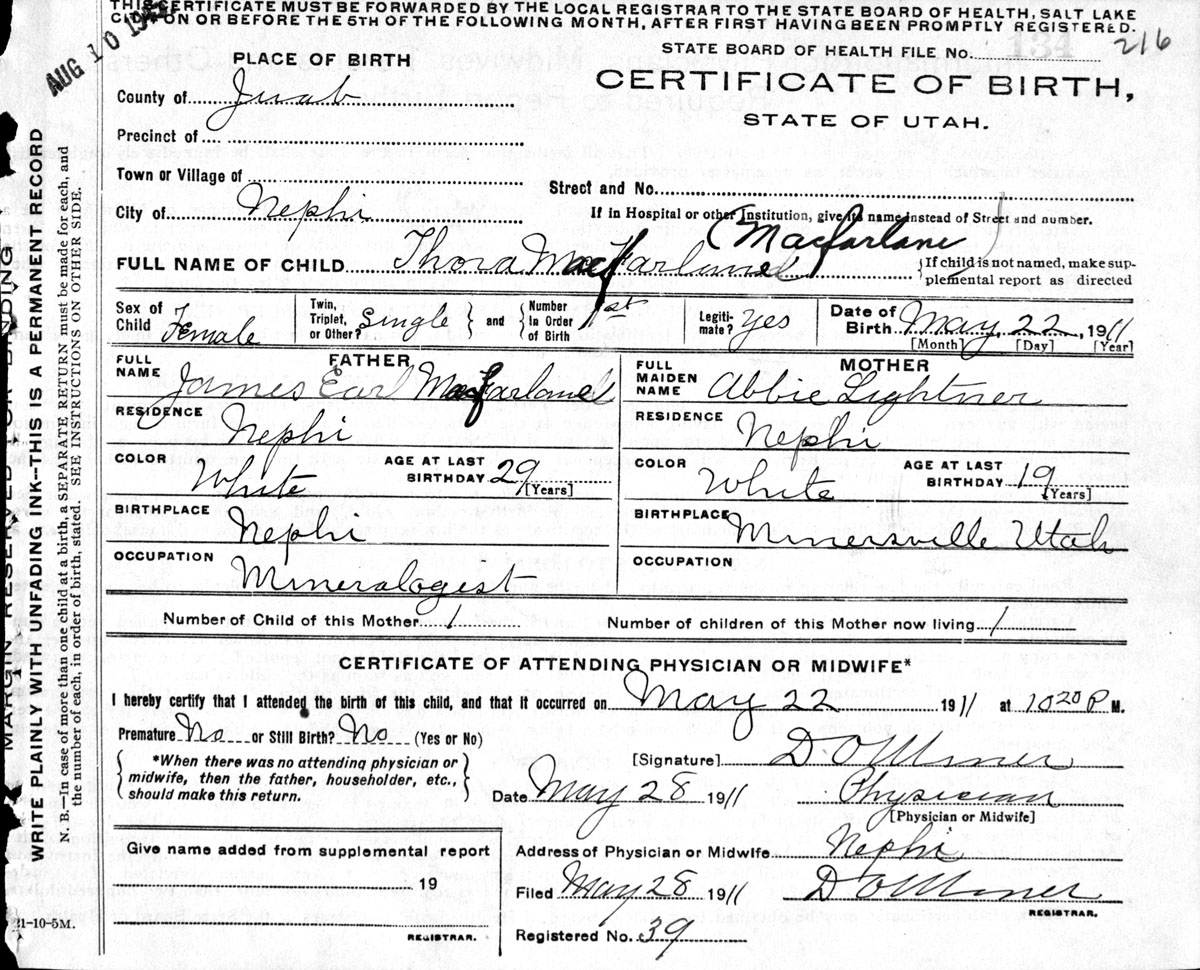 THIS CERTIFICATE MUST BE FORWARDED BY THE LOCAL REGISTRAR TO THE STATE BOARD OF HEALTH, SALT LAKE
CITY, ON OR BEFORE THE 5TH OF THE FOLLOWING MONTH, AFTER FIRST HAVING BEEN PROMPTLY REGISTERED.
AUG 10
STATE BOARD OF HEALTH FILE No. 134 216
PLACE OF BIRTH
CERTIFICATE OF BIRTH,
STATE OF UTAH.
County of Juab
Precinct of
Town or Village of
Street and No.
City of Nephi
If in Hospital or other Institution, give its name instead of Street and number.
(Macfarlane
FULL NAME OF CHILD Thora Macfarlane
{If child is not named, make sup-
plemental report as directed
Sex of Child Female Twin, Triplet, or Other? Single } and { Number In Order of Birth 1st Legiti- mate? yes Date of Birth May 22, 1911
[Month] [Day] [Year]
FATHER
FULL NAME James Earl Macfarlane
RESIDENCE Nephi
COLOR White AGE AT LAST BIRTHDAY 29 [Years]
BIRTHPLACE Nephi
OCCUPATION Mineralogest
MOTHER
FULL MAIDEN NAME Abbie Lightner
RESIDENCE Nephi
COLOR White AGE AT LAST BIRTHDAY 19 [Years]
BIRTHPLACE Minersville Utah
OCCUPATION
Number of Child of this Mother 1 Number of children of this Mother now living 1
CERTIFICATE OF ATTENDING PHYSICIAN OR MIDWIFE*
I hereby certify that I attended the birth of this child, and that it occurred on May 22 1911 at 10 20 P M.
Premature No or Still Birth? No (Yes or No)
{ *When there was no attending physician or
midwife, then the father, householder, etc.,
should make this return. }
[Signature] D O Miner
Date May 28 1911 Physician
[Physician or Midwife]
Give name added from supplemental report
19
REGISTRAR.
Address of Physician or Midwife Nephi
Filed May 28 1911 D O Miner
REGISTRAR.
Registered No. 39
21-10-5M.
MARGIN RESERVED FOR BINDING
WRITE PLAINLY WITH UNFADING INK—THIS IS A PERMANENT RECORD
N. B.—In case of more than one child at a birth, a SEPARATE RETURN must be made for each, and
the number of each, in order of birth, stated. SEE INSTRUCTIONS ON OTHER SIDE.